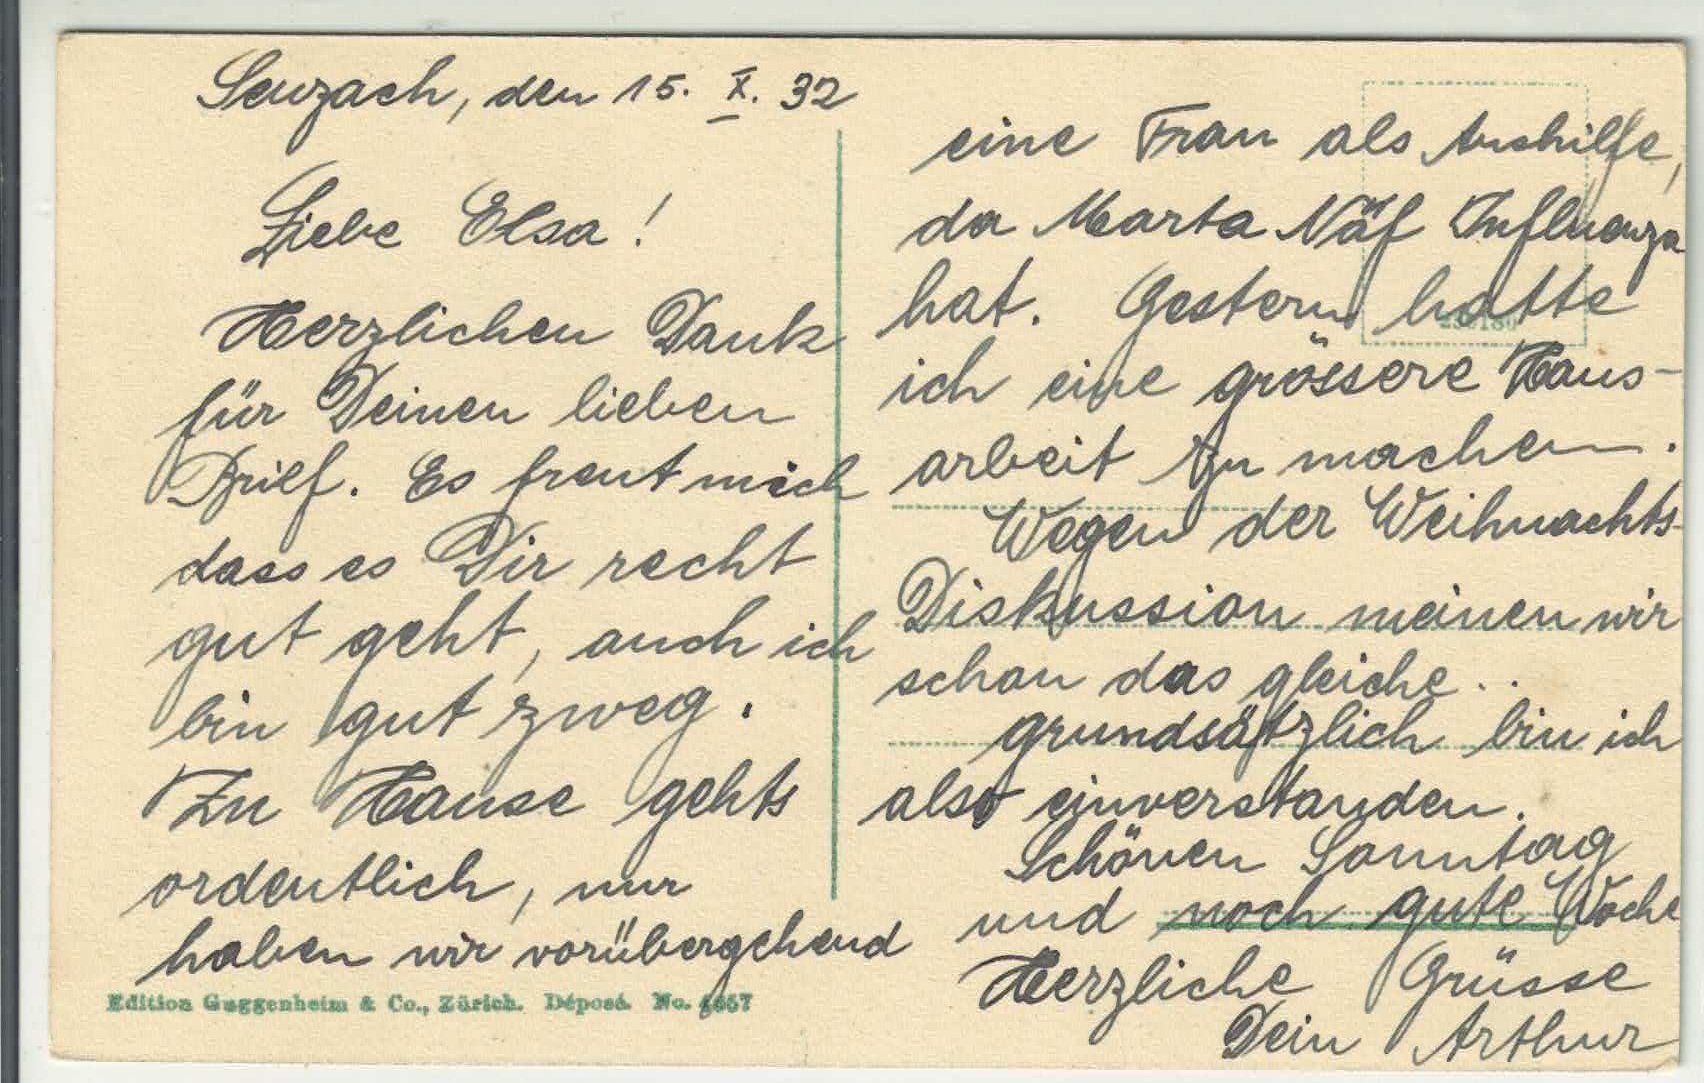 Seuzach, den 15. X. 32
Liebe Elsa!
Herzlichen Dank
für Deinen lieben
Brief. Es freut mich
dass es Dir recht
gut geht, auch ich
bin gut zweg.
Zu Hause gehts
ordentlich, nur
haben wir vorübergehend
eine Frau als Aushilfe,
da Marta Näf Influenza
hat. Gestern hatte
ich eine grössere Haus-
arbeit zu machen.
Wegen der Weihnachts-
Diskussion meinen wir
schon das gleiche..
grundsätzlich bin ich
also einverstanden.
Schönen Sonntag
und noch gute Woche
Herzliche Grüsse
Dein Arthur
Edition Guggenheim & Co., Zürich. Déposé. No.